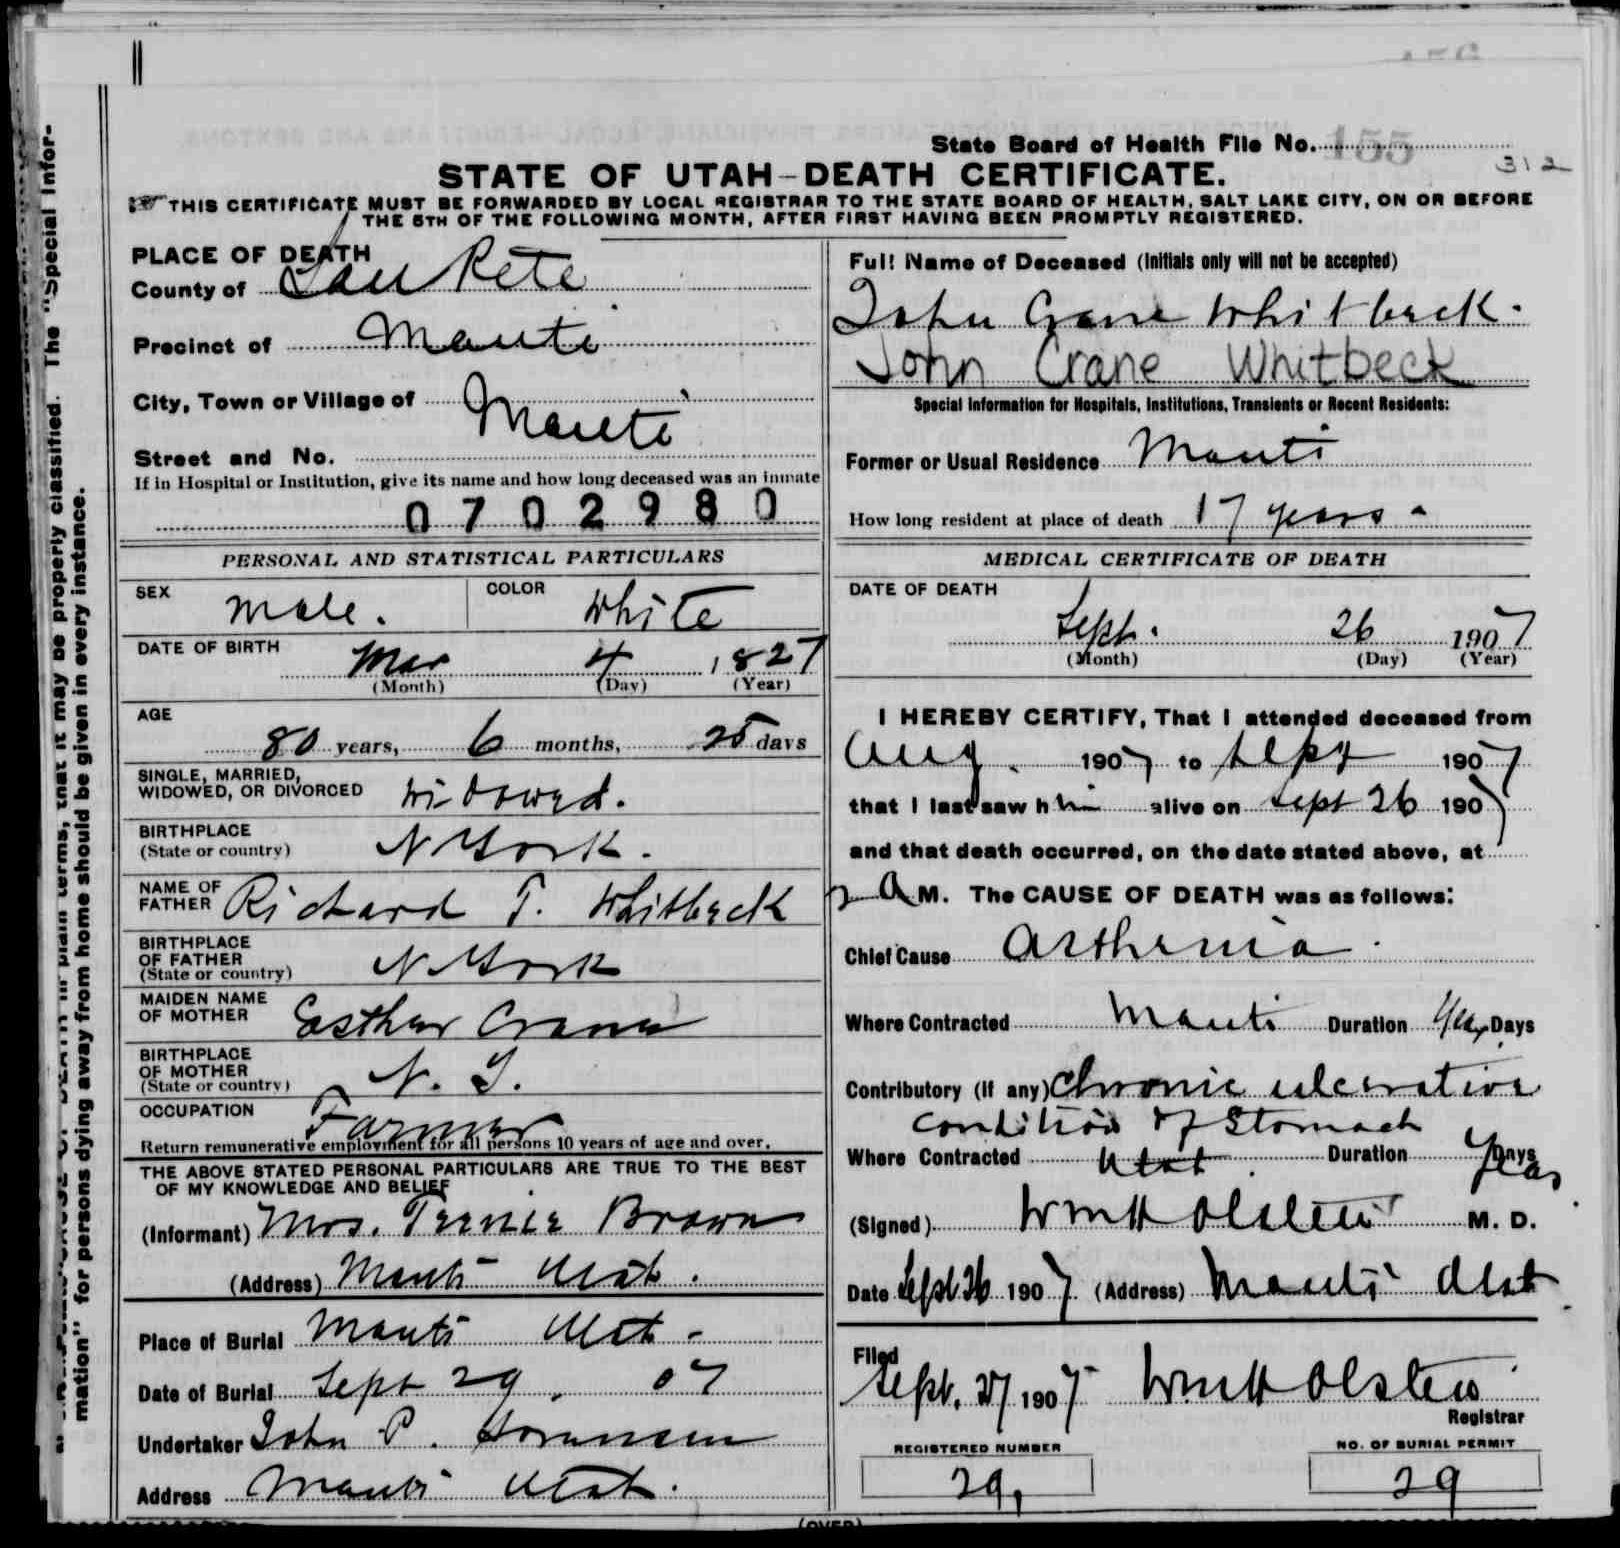 State Board of Health File No. 155
312
STATE OF UTAH—DEATH CERTIFICATE.
THIS CERTIFICATE MUST BE FORWARDED BY LOCAL REGISTRAR TO THE STATE BOARD OF HEALTH, SALT LAKE CITY, ON OR BEFORE
THE 5TH OF THE FOLLOWING MONTH, AFTER FIRST HAVING BEEN PROMPTLY REGISTERED.
PLACE OF DEATH
County of San Pete
Precinct of Manti
City, Town or Village of Manti
Street and No.
If in Hospital or Institution, give its name and how long deceased was an inmate
0702980
Full Name of Deceased (Initials only will not be accepted)
John Crane Whitbeck.
John Crane Whitbeck
Special Information for Hospitals, Institutions, Transients or Recent Residents:
Former or Usual Residence Manti
How long resident at place of death 17 years
PERSONAL AND STATISTICAL PARTICULARS
SEX male.
COLOR White
DATE OF BIRTH
Mar 4 1827
(Month) (Day) (Year)
AGE
80 years, 6 months, 25 days
SINGLE, MARRIED,
WIDOWED, OR DIVORCED widowed.
BIRTHPLACE
(State or country) N York.
NAME OF
FATHER Richard T. Whitbeck
BIRTHPLACE
OF FATHER
(State or country) N York
MAIDEN NAME
OF MOTHER Easther Crane
BIRTHPLACE
OF MOTHER
(State or country) N. Y.
OCCUPATION
Farmer
Return remunerative employment for all persons 10 years of age and over.
THE ABOVE STATED PERSONAL PARTICULARS ARE TRUE TO THE BEST
OF MY KNOWLEDGE AND BELIEF
(Informant) Mrs. Teenie Brown
(Address) Manti Utah.
Place of Burial Manti Utah
Date of Burial Sept 29, 07
Undertaker John P. Sorensen
Address Manti Utah.
MEDICAL CERTIFICATE OF DEATH
DATE OF DEATH
Sept. 26 1907
(Month) (Day) (Year)
I HEREBY CERTIFY, That I attended deceased from
Aug. 1907 to Sept 1907
that I last saw him alive on Sept 26 1907
and that death occurred, on the date stated above, at
2 A M. The CAUSE OF DEATH was as follows:
Chief Cause Asthenia.
Where Contracted Manti Duration Year Days
Contributory (if any) Chronic ulcerative
condition of Stomach
Where Contracted Utah. Duration Years Days
(Signed) Wm H Olsten M. D.
Date Sept 26 1907. (Address) Manti Utah
Filed
Sept. 27 1907 Wm H Olsten
Registrar
REGISTERED NUMBER
29,
NO. OF BURIAL PERMIT
29
(OVER)
mation" for persons dying away from home should be given in every instance.